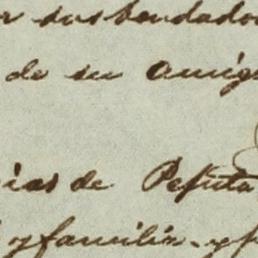 r sus bondado
de su Amig
ias de Pepita
y familia. y p